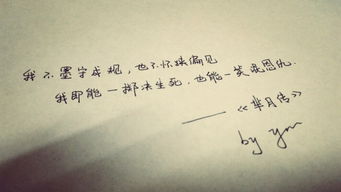 我不墨守成规，也不怀揣偏见
我即能一掷决生死，也能一笑泯恩仇.
——《芈月传》
by ym